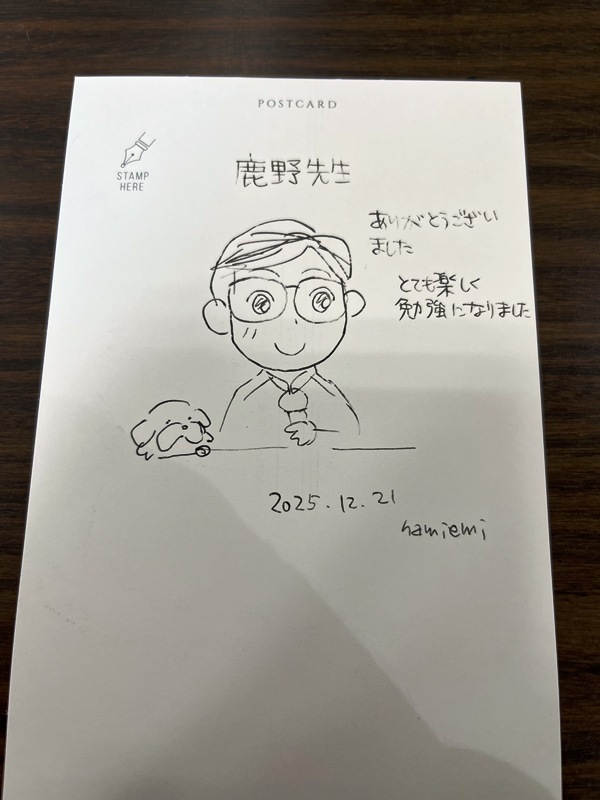 POSTCARD
STAMP
HERE
鹿野先生
ありがとうござい
ました
とても楽しく
勉強になりました
2025.12.21
namiemi